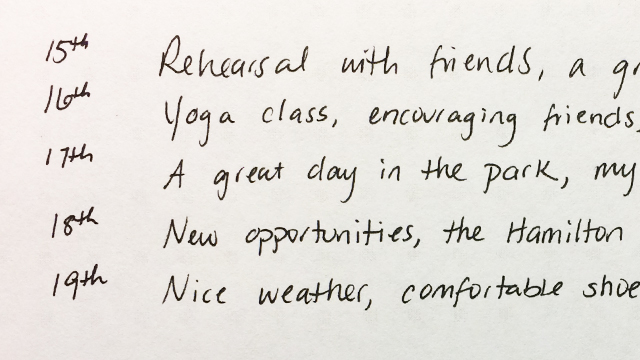 15th Rehearsal with friends, a gr
16th Yoga class, encouraging friends,
17th A great day in the park, my
18th New opportunities, the Hamilton
19th Nice weather, comfortable shoe